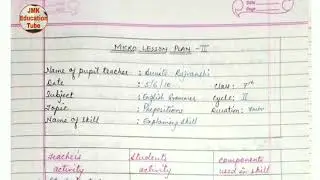 JMK
Education
Tube
Date
Page
MICRO LESSON PLAN - III
Name of pupil teacher :
Date : 5/6/10 Class : 7th
Subject : English Grammar Cycle : II
Topic : Prepositions Duration :
Name of skill : Explaining Skill
Teachers Students components
activity activity used in skill